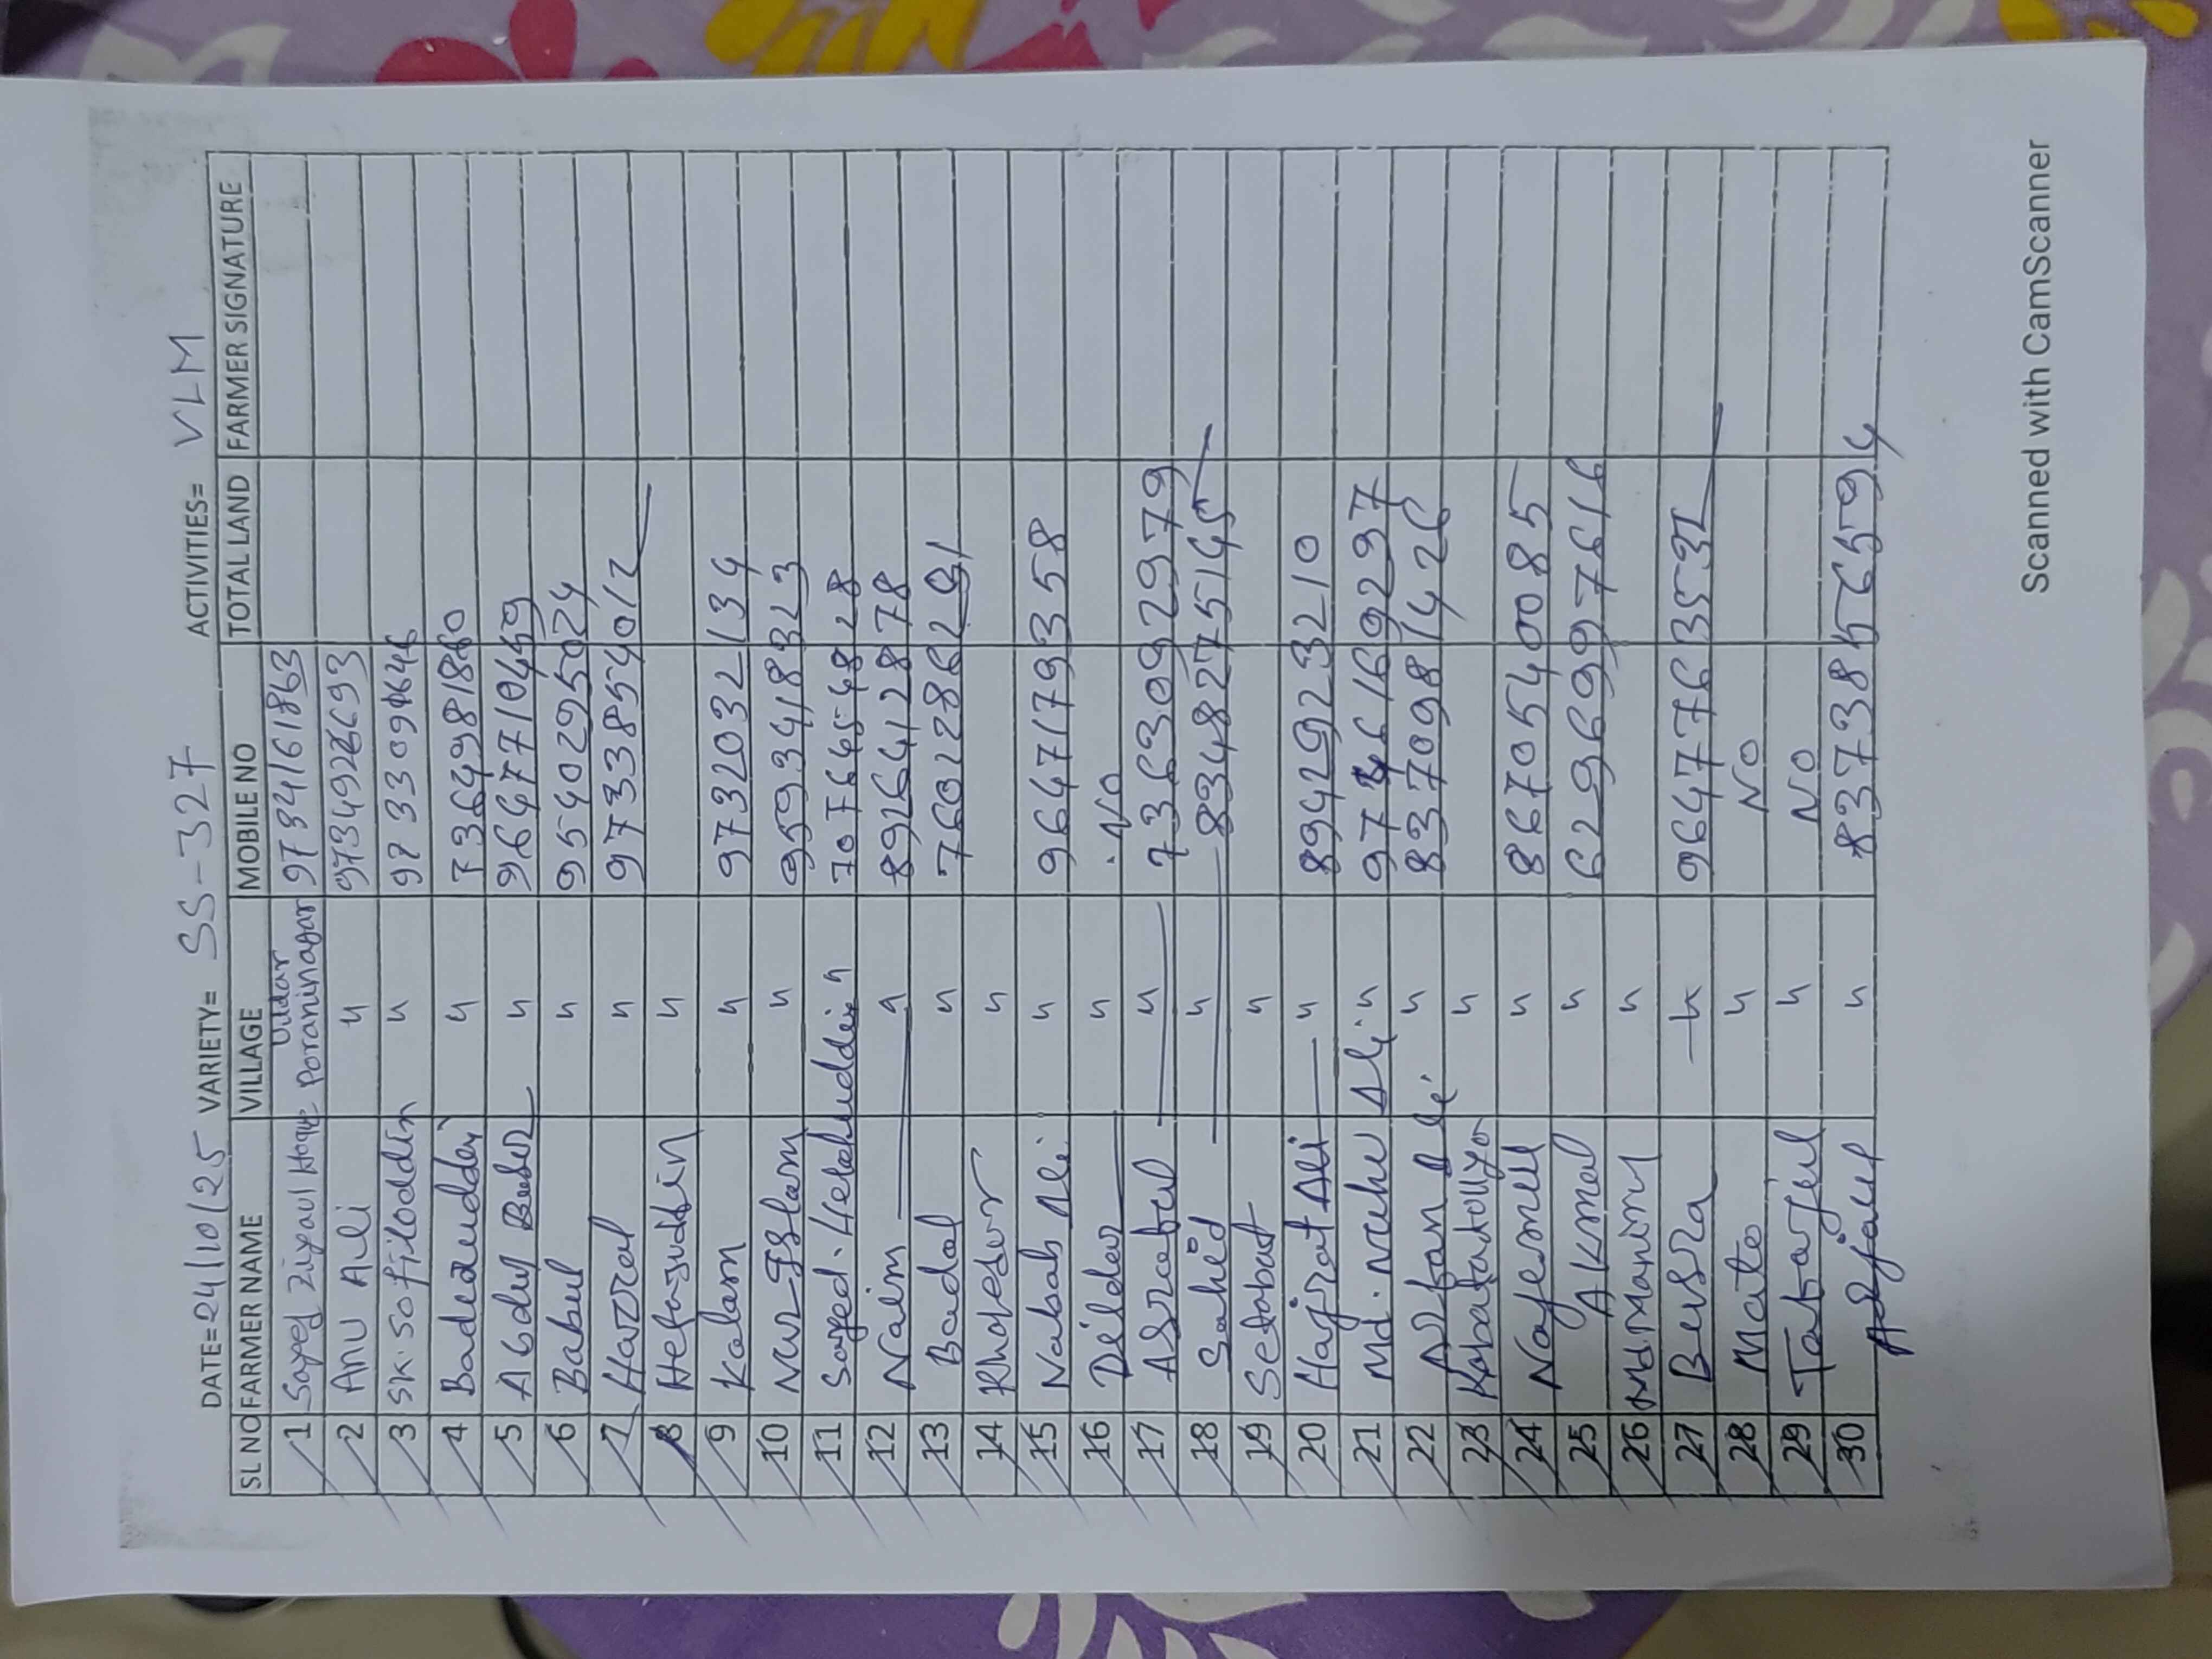 DATE=24/10/25 VARIETY= SS-327 ACTIVITIES= VLM
SL NO FARMER NAME VILLAGE MOBILE NO TOTAL LAND FARMER SIGNATURE
1 Sayed Ziyaul Hoque Uttar Poraninagar 9734161863
2 Anu Ali " 9734926693
3 SK. Sofiloddin " 9733091646
4 " 7364981860
5 Abdul " 9647710459
6 Babul " 9540295024
7 Hazral " 9733854012
8 "
9 Kalam " 9732032134
10 Nur Islam " 9593418323
11 Sayed. " 7076454828
12 Naim " 8926412878
13 Badal "
14 Khayesor "
15 Nabab Ali " 9647179358
16 Dildar " No
17 Asraful " 7363092979
18 Sahid " 8348275145
19 Setabut "
20 Hajrat Ali " 8942923210
21 Md. Ali "
22 Arfan Ali " 8370981426
23 "
24 Nayemul " 8670540085
25 Akmal " 6296997616
26 Md Manirul "
27 Bursra " 964777635
28 Mato " No
29 Tabarjul " No
30 " 8373856594
Scanned with CamScanner